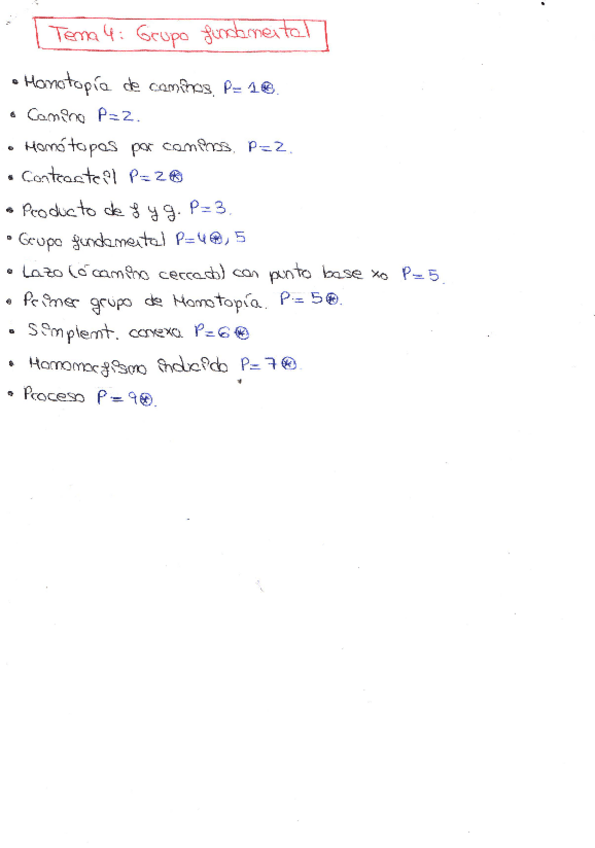 Tema 4: Grupo fundamental
• Homotopía de caminos. P=1⊛.
• Camino P=2.
• Homótopas por caminos. P=2.
• Contractil P=2⊛
• Producto de f y g. P=3.
• Grupo fundamental P=4⊛, 5
• Lazo (ó camino cerrado) con punto base x0 P=5.
• Primer grupo de Homotopía. P=5⊛.
• Simplemt. conexo P=6⊛
• Homomorfismo inducido P=7⊛.
• Proceso P=9⊛.